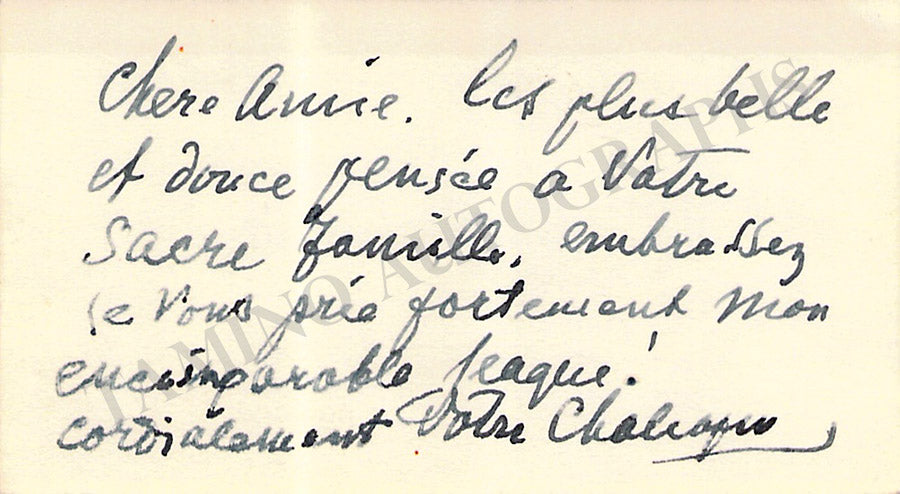 Chere Amie. les plus belle
et douce pensée a Votre
Sacre Famille, embrassez
je vous prie fortement mon
Votre
cordialement
TAMINO AUTOGRAPHS